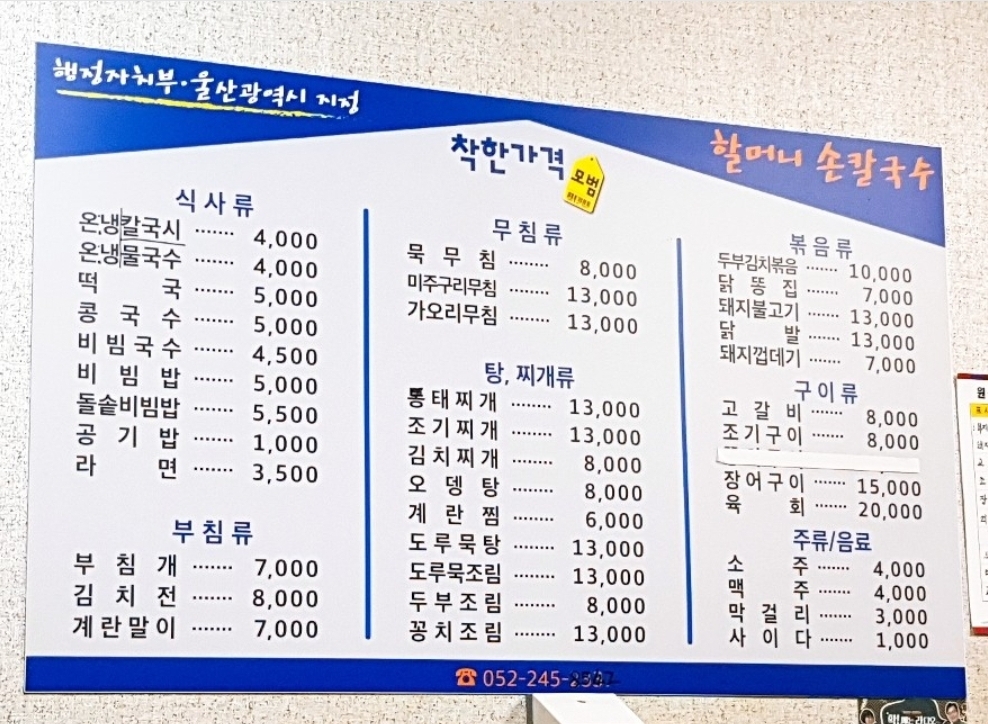 행정자치부·울산광역시 지정
착한가격
모범
할머니 손칼국수
식사류
온,냉칼국시 ······· 4,000
온,냉물국수 ······· 4,000
떡 국 ······· 5,000
콩 국 수 ······· 5,000
비빔국수 ······· 4,500
비 빔 밥 ······· 5,000
돌솥비빔밥 ······· 5,500
공 기 밥 ······· 1,000
라 면 ······· 3,500
부침류
부 침 개 ······· 7,000
김 치 전 ······· 8,000
계란말이 ······· 7,000
무침류
묵 무 침 ······· 8,000
미주구리무침 ······· 13,000
가오리무침 ······· 13,000
탕, 찌개류
통태찌개 ······· 13,000
조기찌개 ······· 13,000
김치찌개 ······· 8,000
오 뎅 탕 ······· 8,000
계 란 찜 ······· 6,000
도루묵탕 ······· 13,000
도루묵조림 ······· 13,000
두부조림 ······· 8,000
꽁치조림 ······· 13,000
볶음류
두부김치볶음 ······ 10,000
닭 똥 집 ······ 7,000
돼지불고기 ······ 13,000
닭 발 ······ 13,000
돼지껍데기 ······ 7,000
구이류
고 갈 비 ······ 8,000
조기구이 ······ 8,000
장어구이 ······ 15,000
육 회 ······ 20,000
주류/음료
소 주 ······ 4,000
맥 주 ······ 4,000
막 걸 리 ······ 3,000
사 이 다 ······ 1,000
☎ 052-245-